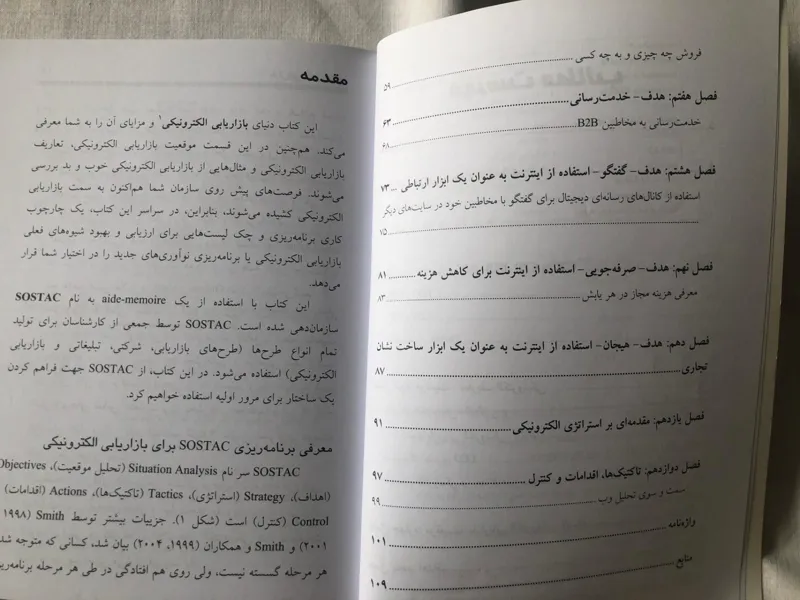 فروش چه چیزی و به چه کسی ........ ۵۹
فصل هفتم: هدف- خدمت‌رسانی ........ ۶۳
خدمت‌رسانی به مخاطبین B2B ........ ۶۸
فصل هشتم: هدف- گفتگو- استفاده از اینترنت به عنوان یک ابزار ارتباطی ... ۷۳
استفاده از کانال‌های رسانه‌ای دیجیتال برای گفتگو با مخاطبین خود در سایت‌های دیگر
........ ۷۵
فصل نهم: هدف- صرفه‌جویی- استفاده از اینترنت برای کاهش هزینه ........ ۸۱
معرفی هزینه مجاز در هر یابش ........ ۸۳
فصل دهم: هدف- هیجان- استفاده از اینترنت به عنوان یک ابزار ساخت نشان
تجاری ........ ۸۷
فصل یازدهم: مقدمه‌ای بر استراتژی الکترونیکی ........ ۹۱
فصل دوازدهم: تاکتیک‌ها، اقدامات و کنترل ........ ۹۷
سمت و سوی تحلیل وب ........ ۹۹
واژه‌نامه ........ ۱۰۱
منابع ........ ۱۰۹
مقدمه
این کتاب دنیای بازاریابی الکترونیکی۱ و مزایای آن را به شما معرفی
می‌کند. هم‌چنین در این قسمت موقعیت بازاریابی الکترونیکی، تعاریف
بازاریابی الکترونیکی و مثال‌هایی از بازاریابی الکترونیکی خوب و بد بررسی
می‌شوند. فرصت‌های پیش روی سازمان شما هم‌اکنون به سمت بازاریابی
الکترونیکی کشیده می‌شوند، بنابراین، در سراسر این کتاب، یک چارچوب
کاری برنامه‌ریزی و چک لیست‌هایی برای ارزیابی و بهبود شیوه‌های فعلی
بازاریابی الکترونیکی یا برنامه‌ریزی نوآوری‌های جدید را در اختیار شما قرار
می‌دهد.
این کتاب با استفاده از یک aide-memoire به نام SOSTAC
سازمان‌دهی شده است. SOSTAC توسط جمعی از کارشناسان برای تولید
تمام انواع طرح‌ها (طرح‌های بازاریابی، شرکتی، تبلیغاتی و بازاریابی
الکترونیکی) استفاده می‌شود. در این کتاب، از SOSTAC جهت فراهم کردن
یک ساختار برای مرور اولیه استفاده خواهیم کرد.
معرفی برنامه‌ریزی SOSTAC برای بازاریابی الکترونیکی
SOSTAC سر نام Situation Analysis (تحلیل موقعیت)، Objectives
(اهداف)، Strategy (استراتژی)، Tactics (تاکتیک‌ها)، Actions (اقدامات)
Control (کنترل) است (شکل ۱). جزییات بیشتر توسط Smith (۱۹۹۸
۲۰۰۱) و Smith و همکاران (۱۹۹۹، ۲۰۰۴) بیان شد، کسانی که متوجه شد
هر مرحله گسسته نیست، ولی روی هم افتادگی در طی هر مرحله برنامه‌ریز